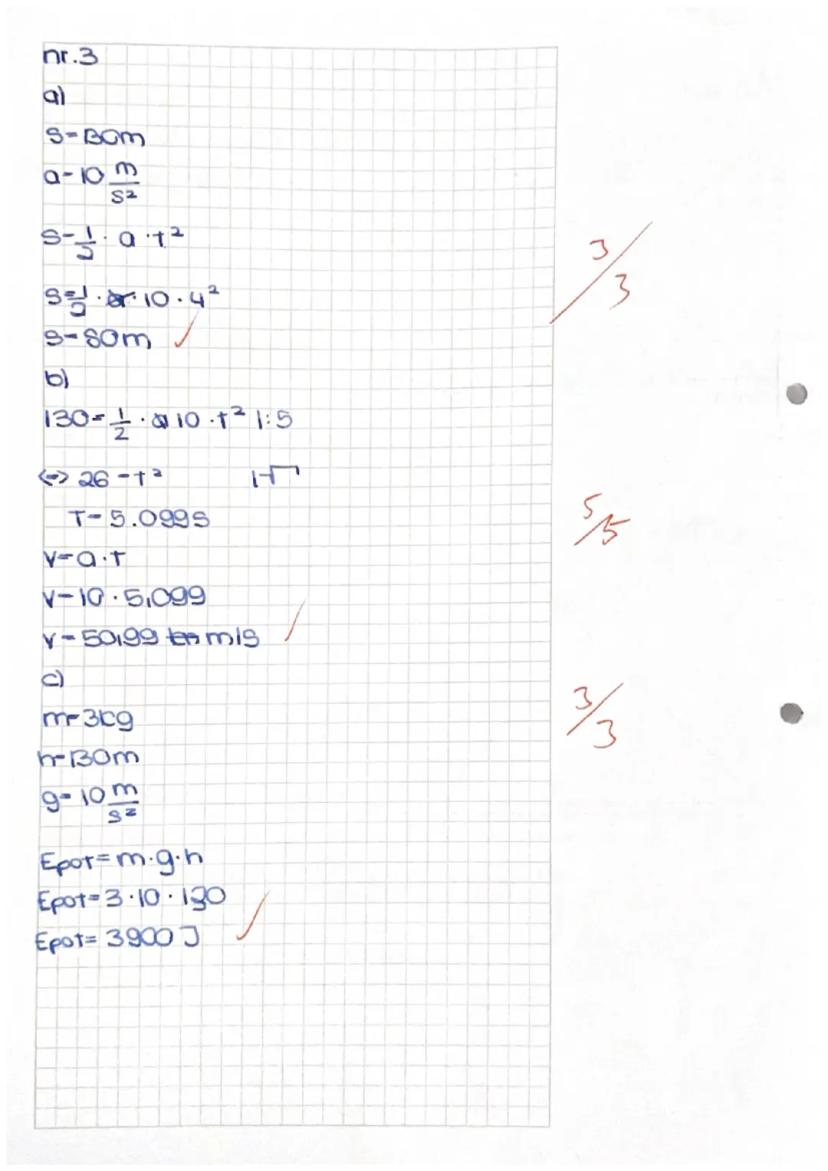 nr.3
a)
s=130m
a=10 m/s²
s=1/2 · a · t²
3/3
s=1/2 · 10 · 4²
s=80m ✓
b)
130=1/2 · 10 · t² |:5
<=> 26=t² |√
T=5.099s
5/5
v=a·T
v=10 · 5,099
v=50,99 m/s ✓
c)
3/3
m=3kg
h=130m
g=10 m/s²
Epot=m·g·h
Epot=3·10·130
Epot=3900 J ✓